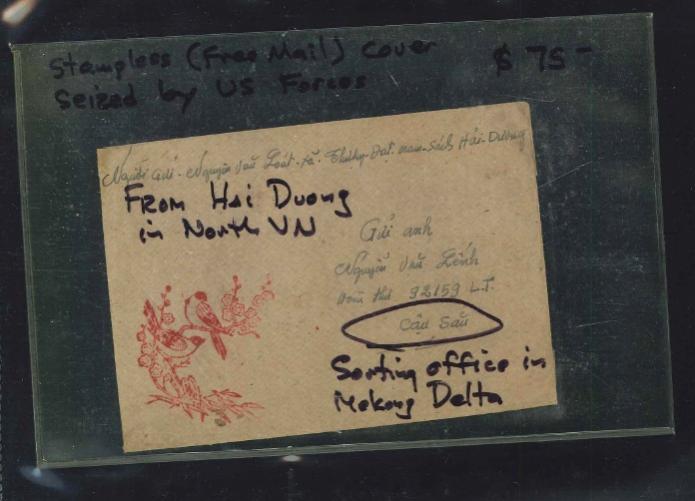 Stampless (Free Mail) cover $75-
seized by US Forces
Người Gửi - Nguyễn Văn Loát - xã. Đạt. nam-Sách Hải-Dương
From Hai Duong
in North VN
Gửi anh
Nguyễn Văn Lênh
92159 L.T.
Cậu Sau
Sorting office in
Mekong Delta